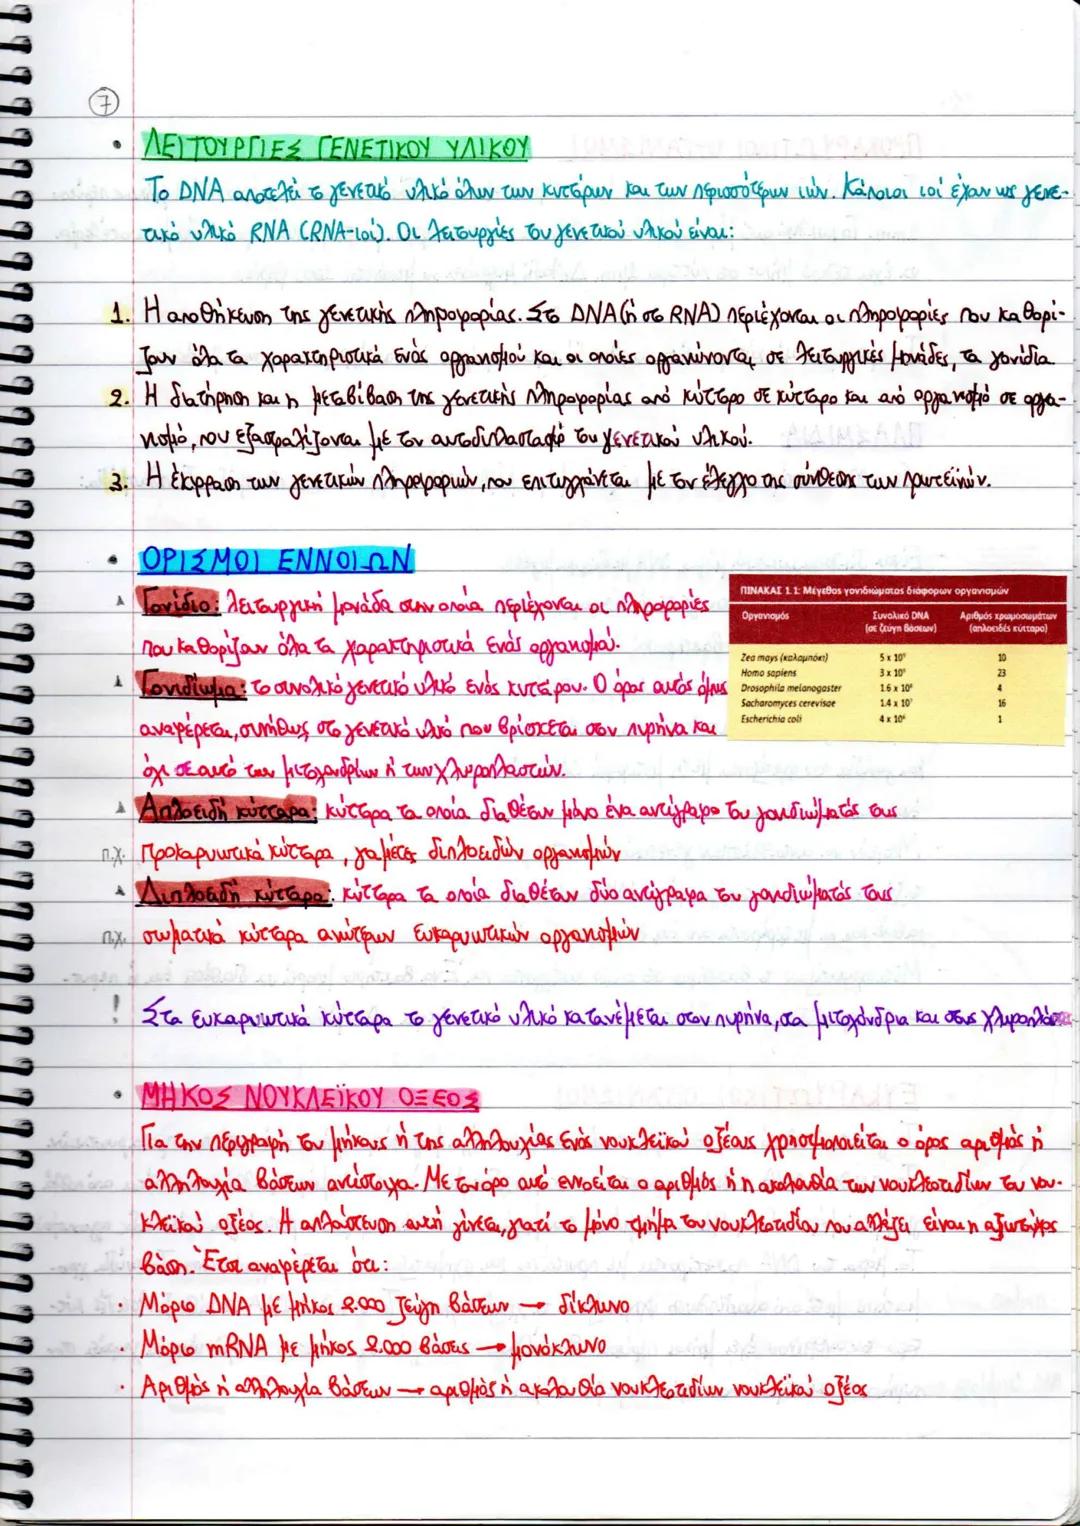 7
• ΛΕΙΤΟΥΡΓΙΕΣ ΓΕΝΕΤΙΚΟΥ ΥΛΙΚΟΥ
Το DNA αποτελεί το γενετικό υλικό όλων των κυττάρων και των περισσότερων ιών. Κάποιοι ιοί έχουν ως γενε-
τικό υλικό RNA (RNA-ιοί). Οι λειτουργίες του γενετικού υλικού είναι:
1. Η αποθήκευση της γενετικής πληροφορίας. Στο DNA (ή στο RNA) περιέχονται οι πληροφορίες που καθορί-
ζουν όλα τα χαρακτηριστικά ενός οργανισμού και οι οποίες οργανώνονται σε λειτουργικές μονάδες, τα γονίδια
2. Η διατήρηση και η μεταβίβαση της γενετικής πληροφορίας από κύτταρο σε κύτταρο και από οργανισμό σε οργα-
νισμό, που εξασφαλίζονται με τον αυτοδιπλασιασμό του γενετικού υλικού.
3. Η έκφραση των γενετικών πληροφοριών, που επιτυγχάνεται με τον έλεγχο της σύνθεσης των πρωτεϊνών.
• ΟΡΙΣΜΟΙ ΕΝΝΟΙΩΝ
Γονίδιο: λειτουργική μονάδα στην οποία περιέχονται οι πληροφορίες
που καθορίζουν όλα τα χαρακτηριστικά ενός οργανισμού.
Γονιδίωμα: το συνολικό γενετικό υλικό ενός κυττάρου. Ο όρος αυτός όμως
αναφέρεται, συνήθως στο γενετικό υλικό που βρίσκεται στον πυρήνα και
όχι σε αυτό των μιτοχονδρίων ή των χλωροπλαστών.
ΠΙΝΑΚΑΣ 1.1: Μέγεθος γονιδιώματος διάφορων οργανισμών
Οργανισμός Συνολικό DNA (σε ζεύγη βάσεων) Αριθμός χρωμοσωμάτων (απλοειδές κύτταρο)
Zea mays (καλαμπόκι) 5 x 10⁹ 10
Homo sapiens 3 x 10⁹ 23
Drosophila melanogaster 1.6 x 10⁸ 4
Sacharomyces cerevisae 1.4 x 10⁷ 16
Escherichia coli 4 x 10⁶ 1
Απλοειδή κύτταρα: κύτταρα τα οποία διαθέτουν μόνο ένα αντίγραφο του γονιδιώματός τους
π.χ. προκαρυωτικά κύτταρα, γαμέτες διπλοειδών οργανισμών
Διπλοειδή κύτταρα: κύτταρα τα οποία διαθέτουν δύο αντίγραφα του γονιδιώματός τους
π.χ. σωματικά κύτταρα ανώτερων ευκαρυωτικών οργανισμών
! Στα ευκαρυωτικά κύτταρα το γενετικό υλικό κατανέμεται στον πυρήνα, στα μιτοχόνδρια και στους
• ΜΗΚΟΣ ΝΟΥΚΛΕΪΚΟΥ ΟΞΕΟΣ
Για την περιγραφή του μήκους ή της αλληλουχίας ενός νουκλεϊκού οξέους χρησιμοποιείται ο όρος αριθμός ή
αλληλουχία βάσεων αντίστοιχα. Με τον όρο αυτό εννοείται ο αριθμός ή η ακολουθία των νουκλεοτιδίων του νου-
κλεϊκού οξέος. Η απλούστευση αυτή γίνεται, γιατί το μόνο τμήμα του νουκλεοτιδίου που αλλάζει είναι η αζωτούχος
βάση. Έτσι αναφέρεται ότι:
· Μόριο DNA με μήκος 2.000 ζεύγη βάσεων → δίκλωνο
· Μόριο mRNA με μήκος 2.000 βάσεις → μονόκλωνο
· Αριθμός ή αλληλουχία βάσεων → αριθμός ή ακολουθία νουκλεοτιδίων νουκλεϊκού οξέος